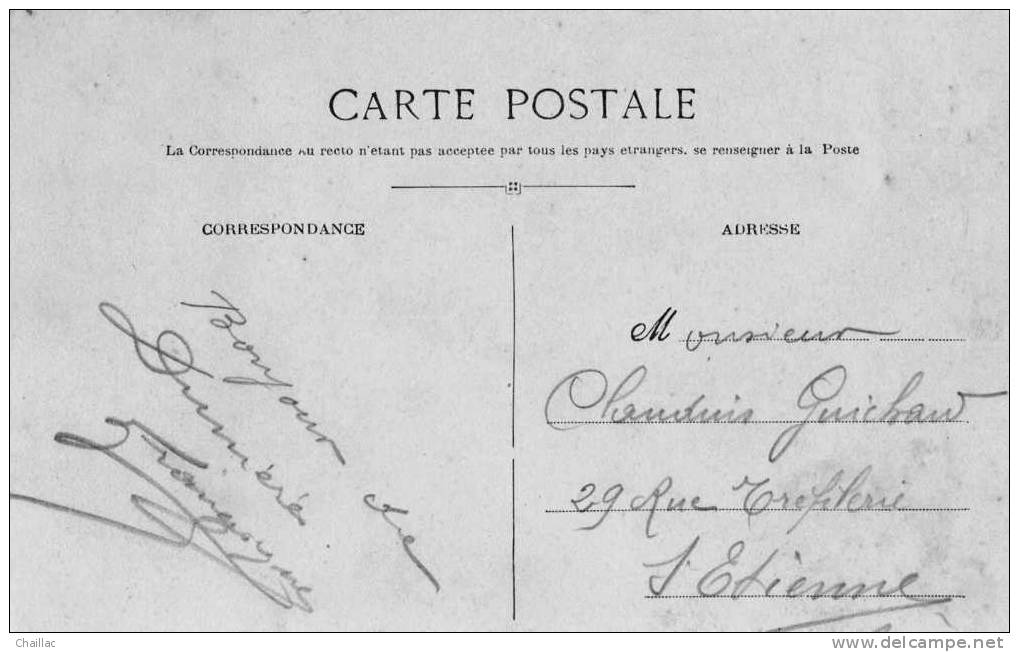 CARTE POSTALE
La Correspondance au recto n'etant pas acceptee par tous les pays etrangers, se renseigner à la Poste
CORRESPONDANCE
Bonjour de
ADRESSE
Monsieur
Claudius Guichard
29 Rue Trefilerie
St Etienne
Chaillac
www.delcampe.net